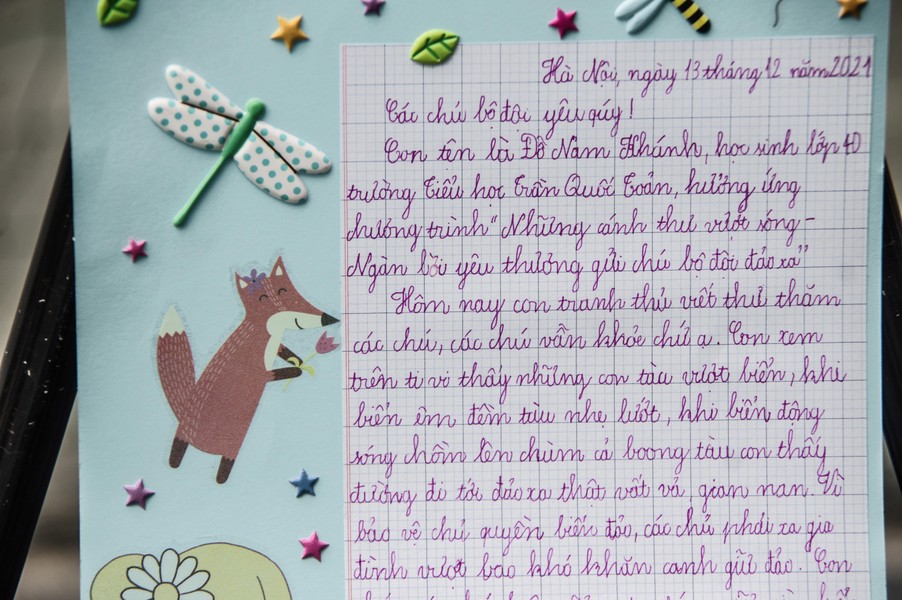 Hà Nội, ngày 13 tháng 12 năm 2021
Các chú bộ đội yêu quý!
Con tên là Đỗ Nam Khánh, học sinh lớp 4D
trường Tiểu học Trần Quốc Toản, hưởng ứng
chương trình "Những cánh thư vượt sóng -
Ngàn lời yêu thương gửi chú bộ đội đảo xa"
Hôm nay con tranh thủ viết thư thăm
các chú, các chú vẫn khỏe chứ ạ. Con xem
trên ti vi thấy những con tàu vượt biển, khi
biển êm đềm tàu nhẹ lướt, khi biển động
sóng chồm lên chùm cả boong tàu con thấy
đường đi tới đảo xa thật vất vả, gian nan. Vì
bảo vệ chủ quyền biển đảo, các chú phải xa gia
đình vượt bao khó khăn canh giữ đảo. Con